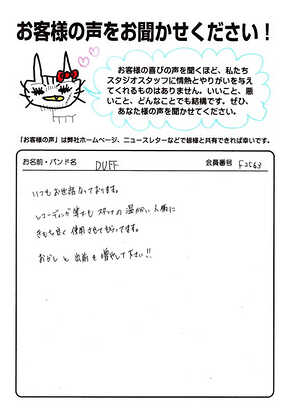 お客様の声をお聞かせください！
お客様の喜びの声を聞くほど、私たち
スタジオスタッフに情熱とやりがいを与え
てくれるものはありません。いいこと、悪
いこと、どんなことでも結構です。ぜひ、
あなた様の声をお聞かせください。
「お客様の声」は弊社ホームページ、ニュースレターなどで皆様と共有できれば幸いです。
お名前・バンド名 DUFF 会員番号 F2563
いつもお世話なっております。
レコーディング等もスタッフの温かい人柄に
きもち良く使用させてもらってます。
おかしと出前を増やして下さい!!